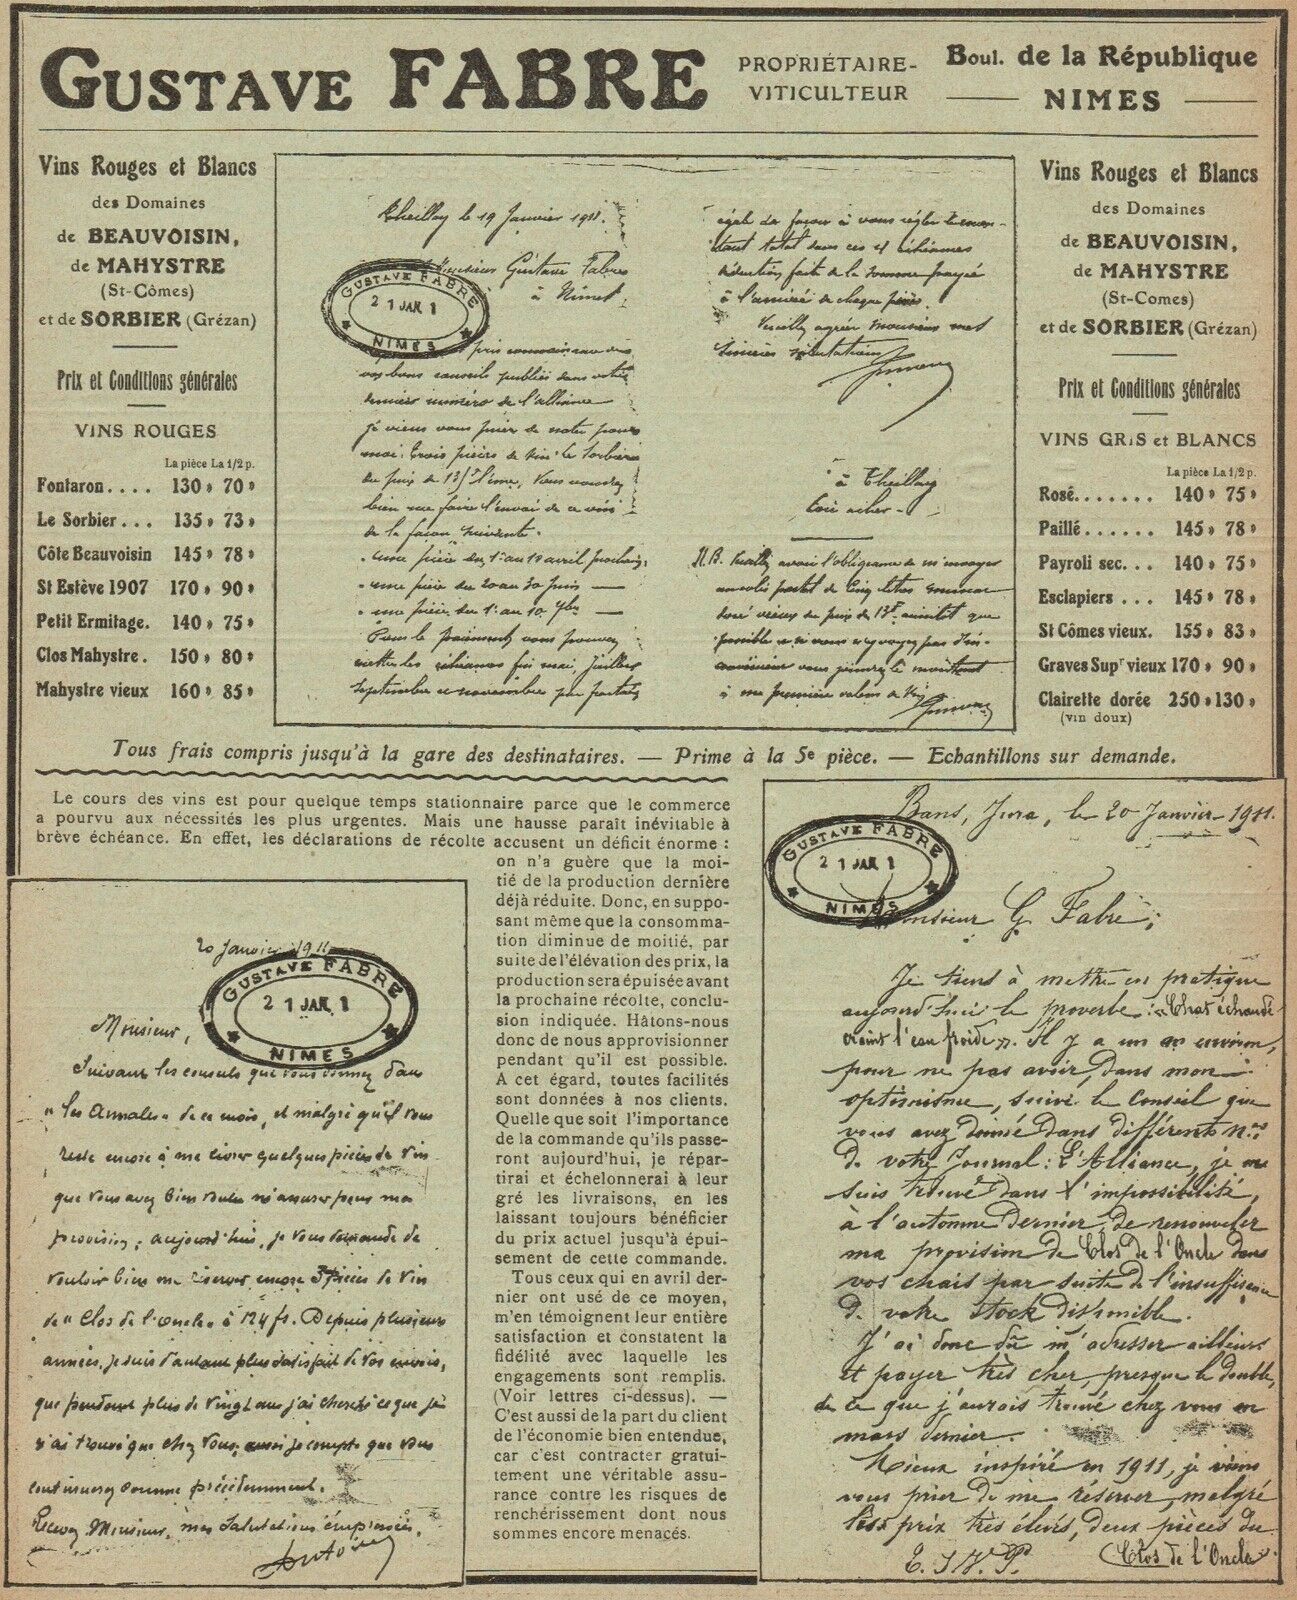 GUSTAVE FABRE
PROPRIÉTAIRE-
VITICULTEUR
Boul. de la République
NIMES
Vins Rouges et Blancs
des Domaines
de BEAUVOISIN,
de MAHYSTRE
(St-Cômes)
et de SORBIER (Grézan)
Prix et Conditions générales
VINS ROUGES
La pièce La 1/2 p.
Fontaron.... 130 » 70 »
Le Sorbier... 135 » 73 »
Côte Beauvoisin 145 » 78 »
St Estève 1907 170 » 90 »
Petit Ermitage. 140 » 75 »
Clos Mahystre. 150 » 80 »
Mahystre vieux 160 » 85 »
Theillay le 19 Janvier 1911.
Monsieur Gustave Fabre
à Nimes
GUSTAVE FABRE
21 JAN 1
NIMES
pris connaissance des
vos bons conseils publiés dans votre
dernier numéro de l'alliance
je viens vous prier de noter pour
moi: trois pièces de vin le Sorbier
du prix de 135f l'une, Vous voudrez
bien me faire l'envoi de ce vin
de la façon suivante.
une pièce du 1er au 10 avril prochain,
une pièce du 20 au 30 juin —
une pièce du 1er au 10 7bre —
Pour le paiement, vous pouvez
mettre les échéances fin mai, juillet
Septembre et novembre par
égale de façon à vous régler le mon-
tant total dans ces 4 échéances
déduction faite de la somme payée
à l'arrivée de chaque pièce.
Veuillez agréer Monsieur mes
sincères salutations
à Theillay
Loir et cher -
N.B. Veuillez avoir l'obligeance de m'envoyer
un colis postal de cinq litres
doré vieux du prix de 13f aussitôt que
possible et si vous n'y voyez pas d'in-
convénient vous joindrez le montant
à ma première valeur de vin
Vins Rouges et Blancs
des Domaines
de BEAUVOISIN,
de MAHYSTRE
(St-Comes)
et de SORBIER (Grézan)
Prix et Conditions générales
VINS GRIS et BLANCS
La pièce La 1/2 p.
Rosé....... 140 » 75 »
Paillé...... 145 » 78 »
Payroli sec... 140 » 75 »
Esclapiers ... 145 » 78 »
St Cômes vieux. 155 » 83 »
Graves Supr vieux 170 » 90 »
Clairette dorée 250 » 130 »
(vin doux)
Tous frais compris jusqu'à la gare des destinataires. — Prime à la 5e pièce. — Echantillons sur demande.
Le cours des vins est pour quelque temps stationnaire parce que le commerce
a pourvu aux nécessités les plus urgentes. Mais une hausse paraît inévitable à
brève échéance. En effet, les déclarations de récolte accusent un déficit énorme :
on n'a guère que la moi-
tié de la production dernière
déjà réduite. Donc, en suppo-
sant même que la consomma-
tion diminue de moitié, par
suite de l'élévation des prix, la
production sera épuisée avant
la prochaine récolte, conclu-
sion indiquée. Hâtons-nous
donc de nous approvisionner
pendant qu'il est possible.
A cet égard, toutes facilités
sont données à nos clients.
Quelle que soit l'importance
de la commande qu'ils passe-
ront aujourd'hui, je répar-
tirai et échelonnerai à leur
gré les livraisons, en les
laissant toujours bénéficier
du prix actuel jusqu'à épui-
sement de cette commande.
Tous ceux qui en avril der-
nier ont usé de ce moyen,
m'en témoignent leur entière
satisfaction et constatent la
fidélité avec laquelle les
engagements sont remplis.
(Voir lettres ci-dessus). —
C'est aussi de la part du client
de l'économie bien entendue,
car c'est contracter gratui-
tement une véritable assu-
rance contre les risques de
renchérissement dont nous
sommes encore menacés.
20 Janvier 1911
GUSTAVE FABRE
21 JAN 1
NIMES
Monsieur,
Suivant les conseils que vous donnez dans
"les Annales" de ce mois, et malgré qu'il vous
reste encore à me livrer quelques pièces de vin
que vous avez bien voulu m'assurer pour ma
provision; aujourd'hui, je vous demande de
vouloir bien me réserver encore 3 pièces de vin
de "Clos de l'Oncle" à 124 fs. Depuis plusieurs
années, je suis d'autant plus satisfait de vos envois,
que pendant plus de vingt ans j'ai cherché ce que je
n'ai trouvé que chez vous, aussi je compte que vous
continuerez comme précédemment.
Recevez Monsieur, mes salutations empressées,
Bans, Jura, le 20 Janvier 1911.
GUSTAVE FABRE
21 JAN 1
NIMES
Monsieur G. Fabre;
Je tiens à mettre en pratique
aujourd'hui le proverbe: "Chat échaudé
craint l'eau froide". Il y a un an environ,
pour ne pas avoir, dans mon
optimisme, suivi le conseil que
vous avez donné dans différents nos
de votre Journal: L'Alliance, je me
suis trouvé dans l'impossibilité,
à l'automne dernier, de renouveler
ma provision de Clos de l'Oncle dans
vos chais par suite de l'insuffisance
de votre stock disponible.
J'ai donc dû m'adresser ailleurs
et payer très cher, presque le double,
de ce que j'aurais trouvé chez vous en
mars dernier.
Mieux inspiré en 1911, je viens
vous prier de me réserver, malgré
les prix très élevés, deux pièces du
Clos de l'Oncle.